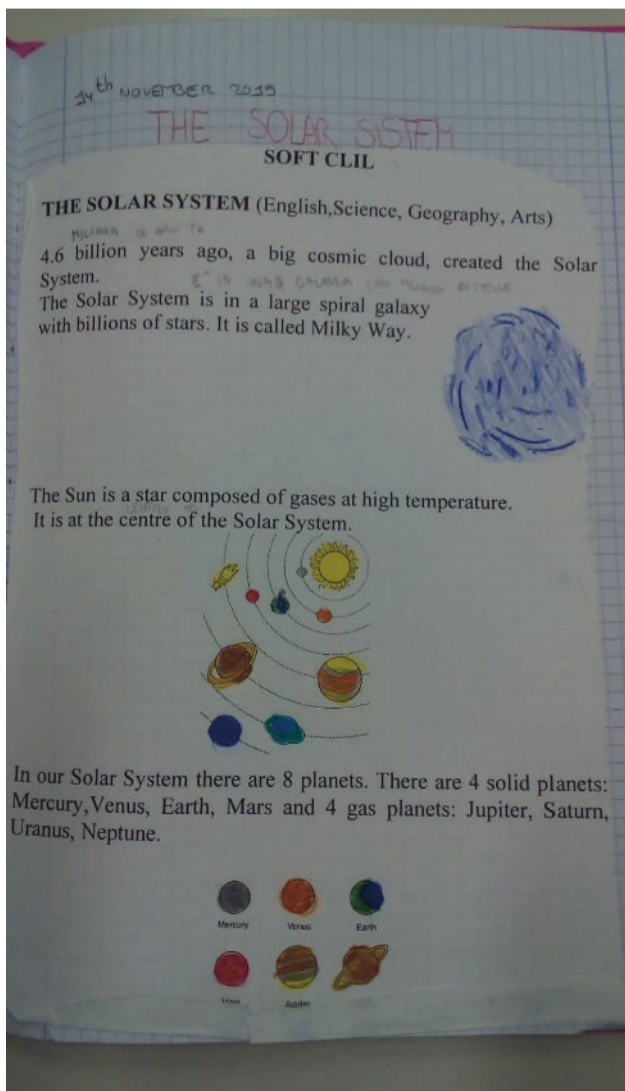 14th NOVEMBER 2019
THE SOLAR SISTEM
SOFT CLIL
THE SOLAR SYSTEM (English,Science, Geography, Arts)
4.6 billion years ago, a big cosmic cloud, created the Solar
System.
The Solar System is in a large spiral galaxy
with billions of stars. It is called Milky Way.
The Sun is a star composed of gases at high temperature.
It is at the centre of the Solar System.
In our Solar System there are 8 planets. There are 4 solid planets:
Mercury,Venus, Earth, Mars and 4 gas planets: Jupiter, Saturn,
Uranus, Neptune.
Mercury Venus Earth
Mars Jupiter